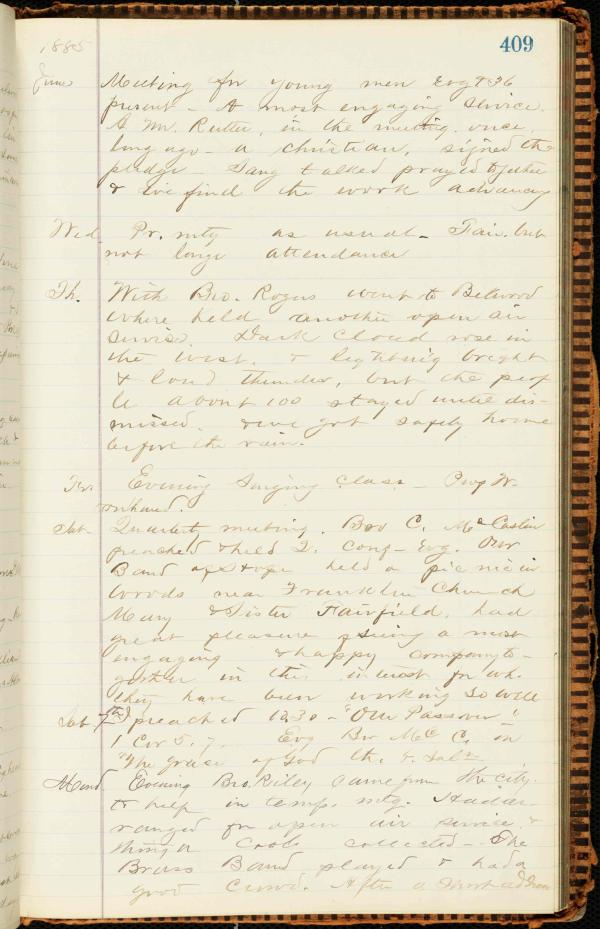 1885
409
June Meeting for young men Evg & 36
present – A most engaging service.
A Mr. Rutter, in the meeting once,
long ago – a christian, signed the
pledge – Sang talked prayed together
& we find the work advancing
Wed. Pr. mtg as usual – Fair but
not large attendance
Th. With Bro. Rogers went to Bellwood
where held another open air
service. Dark Cloud rose in
the West, & lightning bright
& loud thunder, but the peop
le about 100 stayed until dis-
missed. & we got safely home
before the rain.
Evening Singing Class –
Sat. Quarterly meeting. Bro C. McCaslin
preached & held Q. Conf – Evg. Our
Band of Hope held a picnic in
Woods near Franklin Church
Mary & Sister Fairfield, had
great pleasure seeing a most
engaging & happy company to-
gether in this interest for wh.
they have been working so well
7th I preached 10.30 – "Our Passover"
1 Cor 5.7. Evg Bro McC. on
"The grace of God th. b. Salvn
Mond Evening Bro. Riley came from the city.
to help in temp. mtg. Had ar-
ranged for open air service, &
collected – The
Brass Band played & had a
good Crowd. After a short address